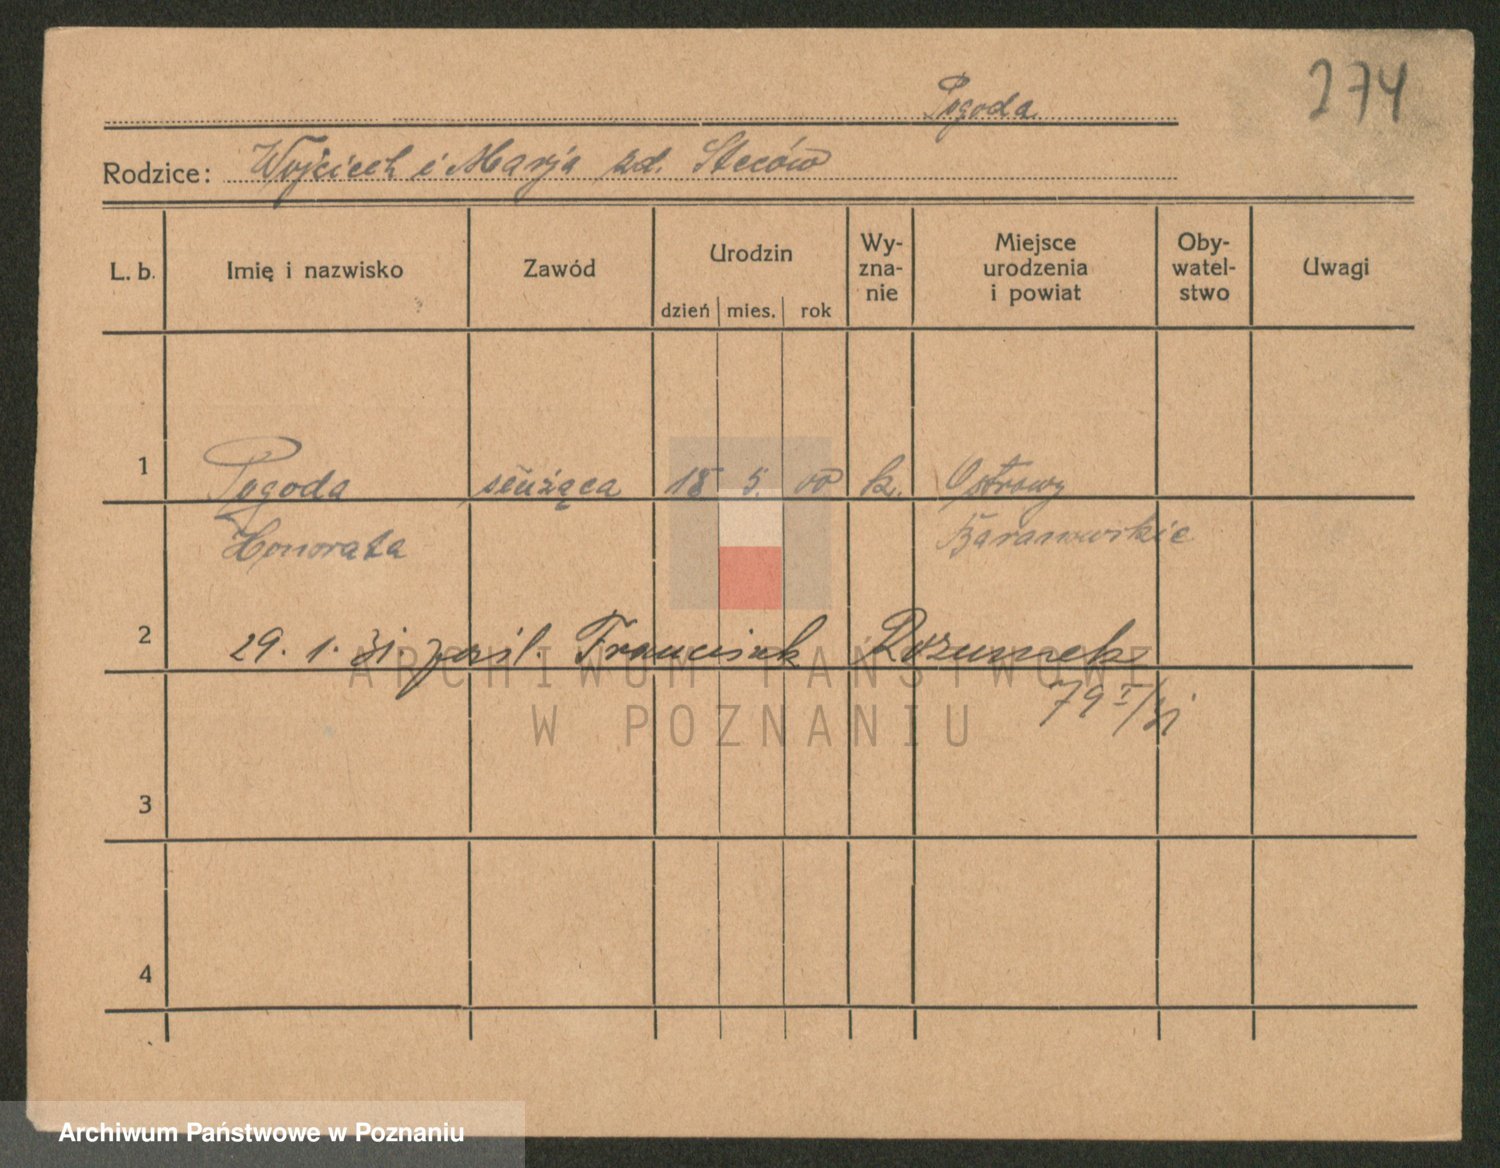 274
Pogoda
Rodzice: Wojciech i Marja zd. Steców
L. b. Imię i nazwisko Zawód Urodzin dzień mies. rok Wy-zna-nie Miejsce urodzenia i powiat Oby-watel-stwo Uwagi
1 Pogoda służąca 18 5. 00 k. Ostrowy
Honorata Baranowskie
2 29. 1. 31. Franciszek
ARCHIWUM PAŃSTWOWE
79 I/31
W POZNANIU
3
4
Archiwum Państwowe w Poznaniu